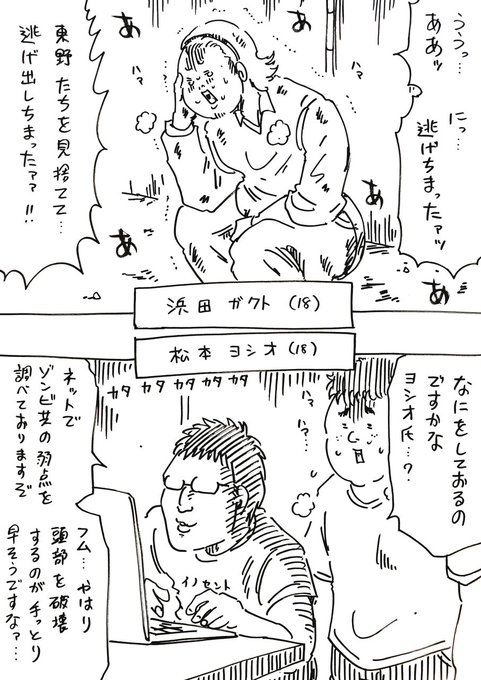 ううっ…
ああッ
にっ…
逃げちまったァッ
東野たちを見捨てて…
逃げ出しちまったァァ!!
あ
あ
あ
あ
あ
あ
ハァ
ハァ
浜田 ガクト (18)
松本 ヨシオ (18)
なにをしておるの
ですかな
ヨシオ氏…?
ハァ…
ハァ…
カタ カタ カタ カタ カタ
ネットで
ゾンビ共の弱点を
調べておりますぞ
イノセント
フム… やはり
頭部を破壊
するのが手っとり
早そうですな?…